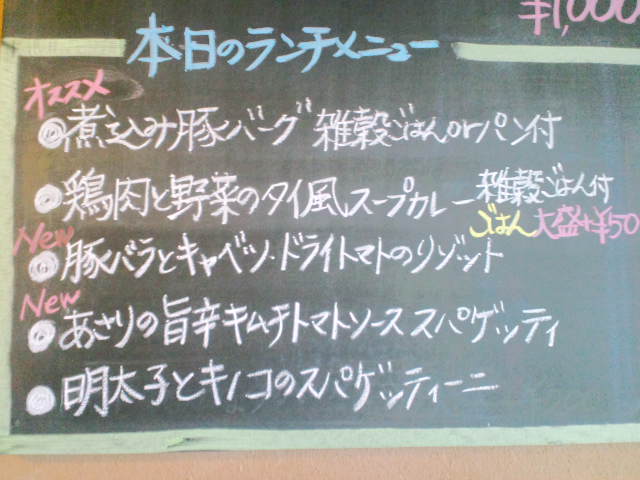 ¥1,000
本日のランチメニュー
オススメ
◎煮込み豚バーグ 雑穀ごはんorパン付
◎鶏肉と野菜のタイ風スープカレー 雑穀ごはん付
ごはん大盛+¥50
New
◎豚バラとキャベツ・ドライトマトのリゾット
New
◎あさりの旨辛キムチトマトソース スパゲッティ
◎明太子とキノコのスパゲッティーニ